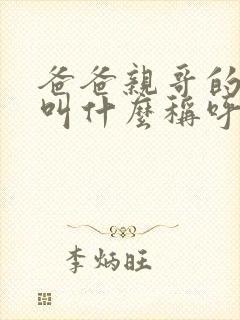 爸爸親哥的
叫什麼稱呼
李炳旺